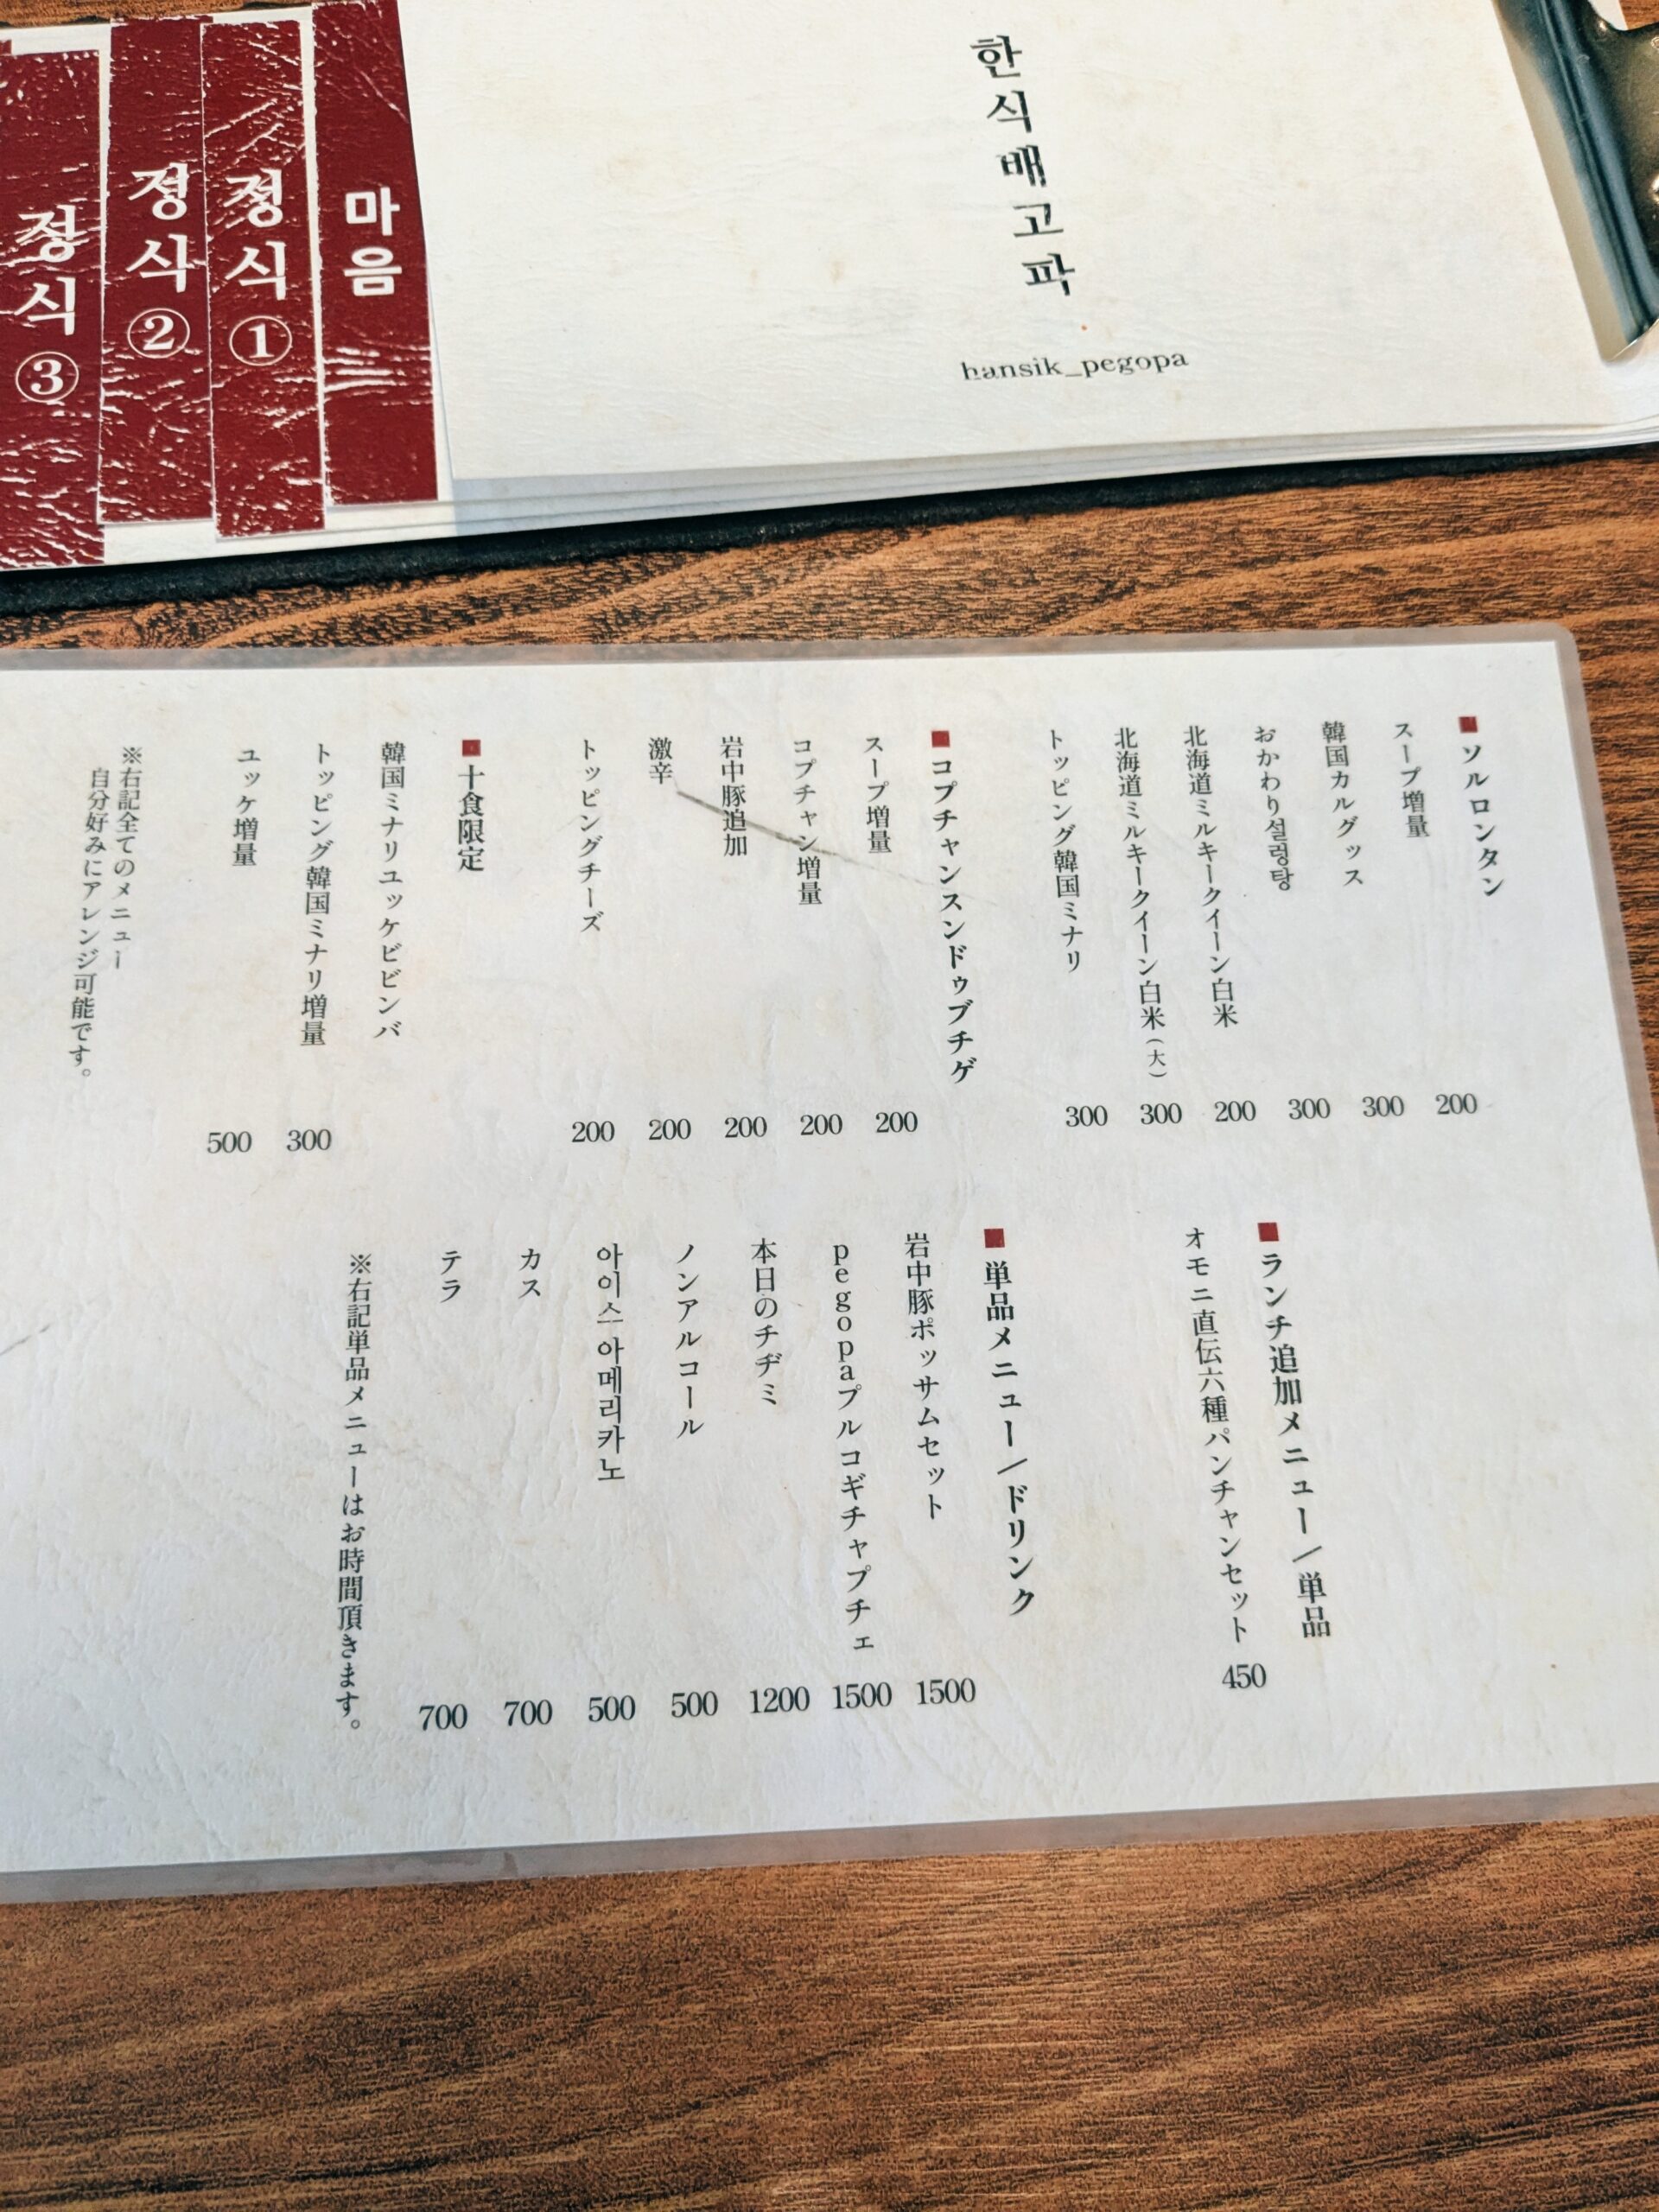 한식배고파
hansik_pegopa
마음
정식①
정식②
정식③
■ソルロンタン
スープ増量 200
韓国カルグッス 300
おかわり설렁탕 300
北海道ミルキークイーン白米 200
北海道ミルキークイーン白米(大) 300
トッピング韓国ミナリ 300
■コプチャンスンドゥブチゲ
スープ増量 200
コプチャン増量 200
岩中豚追加 200
激辛 200
トッピングチーズ 200
■十食限定
韓国ミナリユッケビビンバ
トッピング韓国ミナリ増量 300
ユッケ増量 500
※右記全てのメニュー
自分好みにアレンジ可能です。
■ランチ追加メニュー/単品
オモニ直伝六種パンチャンセット 450
■単品メニュー/ドリンク
岩中豚ポッサムセット 1500
pegopaプルコギチャプチェ 1500
本日のチヂミ 1200
ノンアルコール 500
아이스아메리카노 500
カス 700
テラ 700
※右記単品メニューはお時間頂きます。